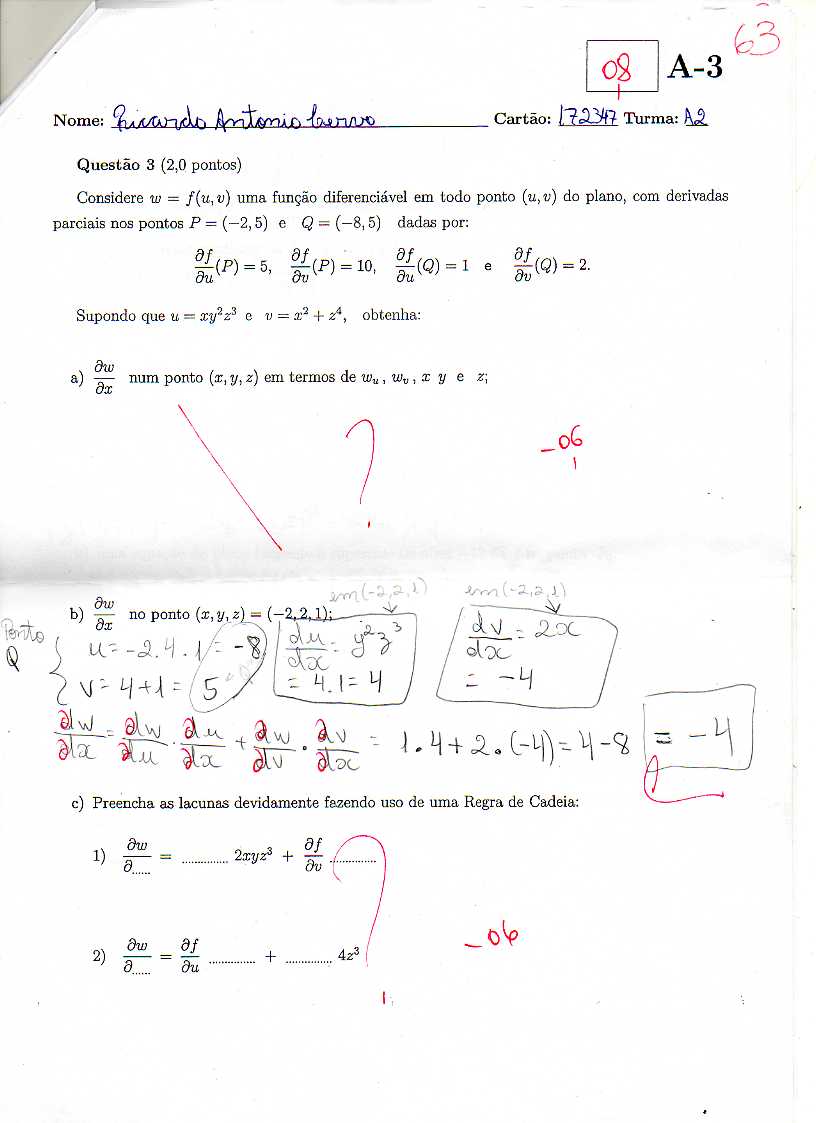 63
08 A-3
Nome: Ricardo Antonio Cartão: 172347 Turma: A2
Questão 3 (2,0 pontos)
Considere w = f(u, v) uma função diferenciável em todo ponto (u, v) do plano, com derivadas
parciais nos pontos P = (−2, 5) e Q = (−8, 5) dadas por:
∂f/∂u (P) = 5, ∂f/∂v (P) = 10, ∂f/∂u (Q) = 1 e ∂f/∂v (Q) = 2.
Supondo que u = xy²z³ e v = x² + z⁴, obtenha:
a) ∂w/∂x num ponto (x, y, z) em termos de w_u , w_v , x y e z;
?
−06
b) ∂w/∂x no ponto (x, y, z) = (−2, 2, 1);
em (-2,2,1) em (-2,2,1)
Ponto Q
u = -2.4.1 = -8
v = 4+1 = 5
du/dx = y²z³
= 4.1 = 4
dv/dx = 2x
= -4
∂w/∂x = ∂w/∂u . ∂u/∂x + ∂w/∂v . ∂v/∂x = 1.4 + 2.(-4) = 4-8 = -4
c) Preencha as lacunas devidamente fazendo uso de uma Regra de Cadeia:
1) ∂w/∂...... = .............. 2xyz³ + ∂f/∂v ..............
?
−06
2) ∂w/∂...... = ∂f/∂u .............. + .............. 4z³